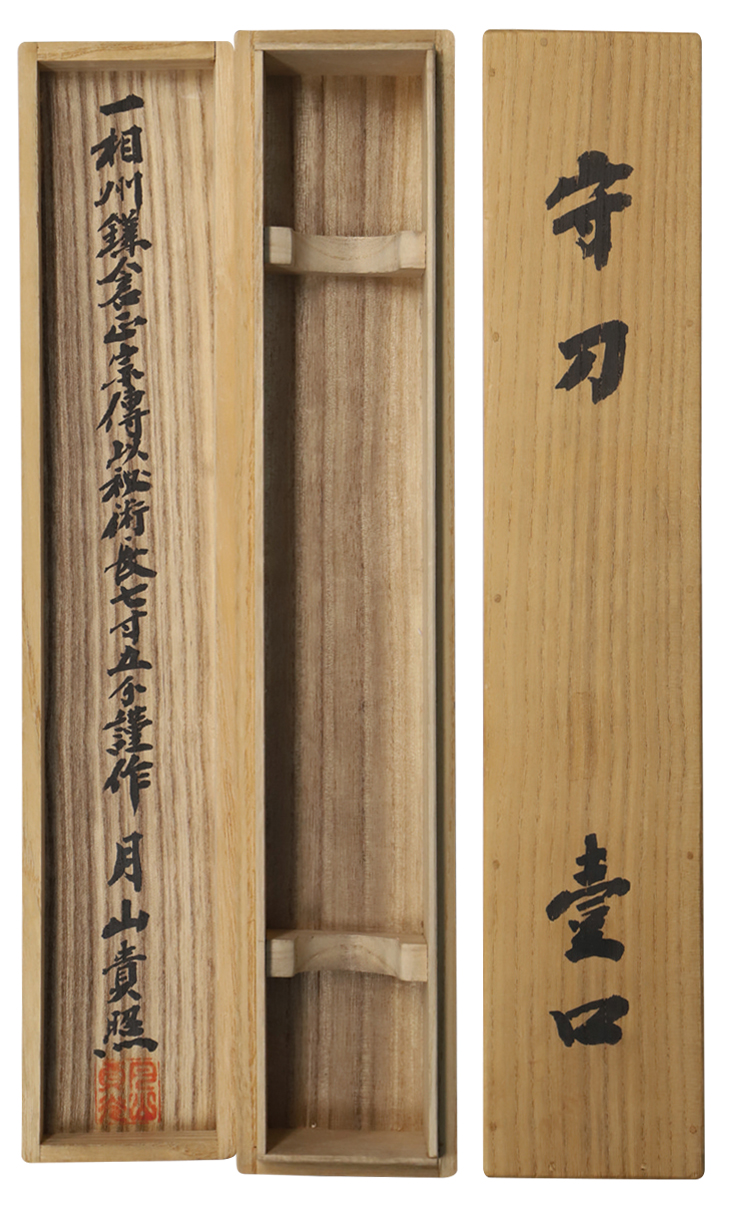 守刀 壹口
一相州鎌倉正宗傳以秘術長七寸五分謹作 月山貴照